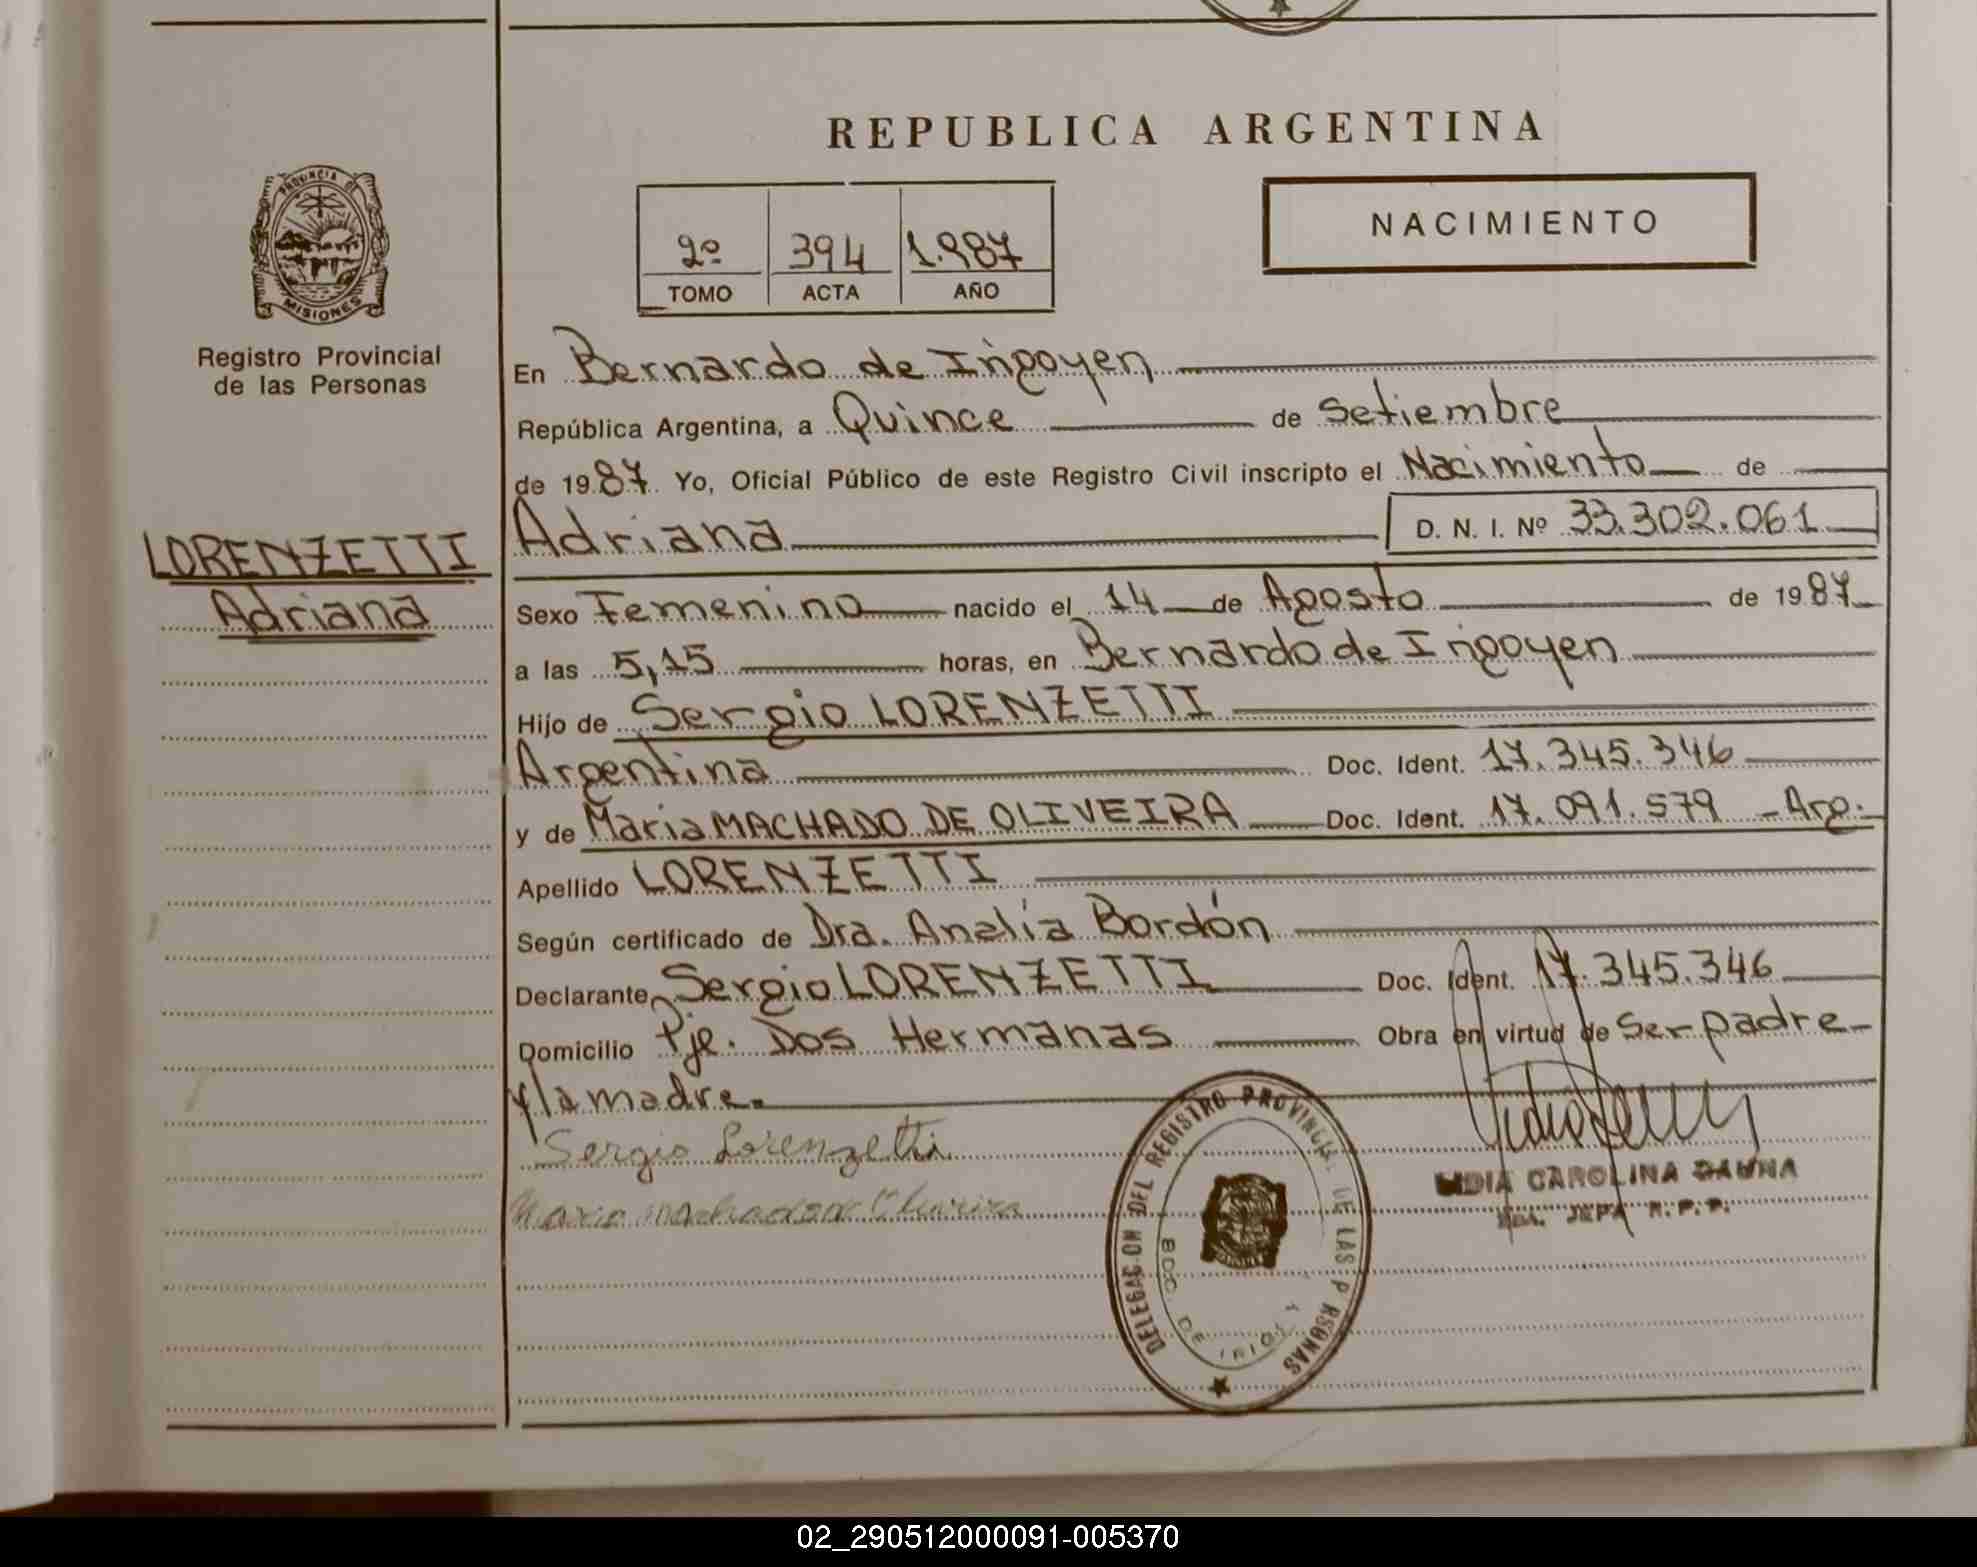 REPUBLICA ARGENTINA
NACIMIENTO
2º 394 1.987
TOMO ACTA AÑO
PROVINCIA DE MISIONES
Registro Provincial
de las Personas
LORENZETTI
Adriana
En Bernardo de Irigoyen
República Argentina, a Quince de Setiembre
de 1987 Yo, Oficial Público de este Registro Civil inscripto el Nacimiento de
Adriana D. N. I. Nº 33.302.061
Sexo Femenino nacido el 14 de Agosto de 1987
a las 5,15 horas, en Bernardo de Irigoyen
Hijo de Sergio LORENZETTI
Argentina Doc. Ident. 17.345.346
y de Maria MACHADO DE OLIVEIRA Doc. Ident. 17.091.579 - Arg.
Apellido LORENZETTI
Según certificado de Dra. Analía Bordón
Declarante Sergio LORENZETTI Doc. Ident. 17.345.346
Domicilio Pje. Dos Hermanas Obra en virtud de Ser padre
y la madre.
Sergio Lorenzetti
Maria Machado de Oliveira
LIDIA CAROLINA
JEFA R.P.P.
DELEGACION DEL REGISTRO PROVINCIAL DE LAS PERSONAS
BDO. DE IRIGOYEN
02_290512000091-005370